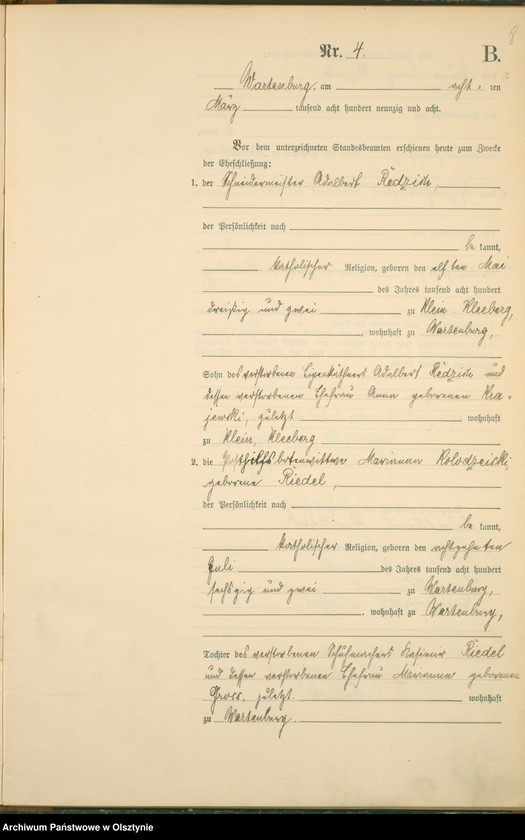 8
Nr. 4. B.
Wartenburg, am acht = ten
März tausend acht hundert neunzig und acht.
Vor dem unterzeichneten Standesbeamten erschienen heute zum Zwecke
der Eheschließung:
1. der Schneidermeister Adalbert Redzich,
der Persönlichkeit nach
be kannt,
katholischer Religion, geboren den elf ten Mai
des Jahres tausend acht hundert
dreißig und zwei zu Klein Kleeberg,
, wohnhaft zu Wartenburg,
Sohn des verstorbenen Eigenkäthners Adalbert Redzich und
dessen verstorbenen Ehefrau Anna geborenen Kra=
jewski, zuletzt wohnhaft
zu Klein Kleeberg
2. die Posthilfsbotenwittwe Marianna Kolodzeiski,
geborene Riedel,
der Persönlichkeit nach
be kannt,
katholischer Religion, geboren den achtzehnten
Juli des Jahres tausend acht hundert
sechszig und zwei zu Wartenburg,
, wohnhaft zu Wartenburg,
Tochter des verstorbenen Schuhmachers Kasimir Riedel
und dessen verstorbenen Ehefrau Marianna geborenen
Gross, zuletzt wohnhaft
zu Wartenburg.
Archiwum Państwowe w Olsztynie